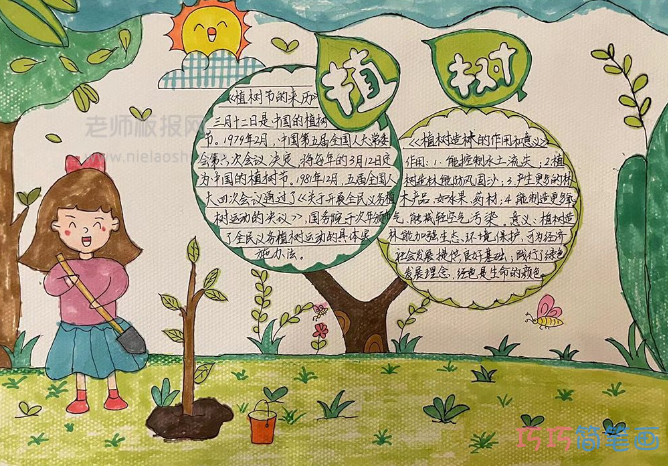 植树
《植树节的来历》
三月十二日是中国的植树
节。1979年2月,中国第五届全国人大常委
会第六次会议决定,将每年的3月12日定
为中国的植树节。1981年12月,五届全国人
大四次会议通过了《关于开展全民义务植
树运动的决议》,国务院于次年颁布
了全民义务植树运动的具体实
施办法。
《植树造林的作用和意义》
作用:1.能控制水土流失;2.植
树造林能防风固沙;3.产生更多的林
木产品,如水果、药材;4.能制造更多氧
气,能减轻空气污染。意义:植树造
林能加强生态、环境保护,可为经济
社会发展提供良好基础;践行了绿色
发展理念,绿色是生命的颜色
老师板报网
www.nielaosh
巧巧简笔画